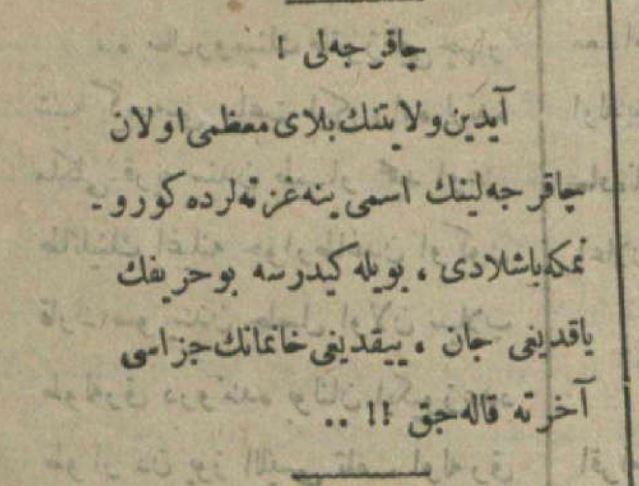 چاقرجه‌لی !
آیدین ولایتنك بلای معظمی اولان
چاقرجه‌لینك اسمی ینه غزته‌لرده كورو-
نمكه باشلادی ، بویله كیدرسه بو حریفك
یاقدیغی جان ، ییقدیغی خانمانك جزاسی
آخرته قاله‌جق !! ..